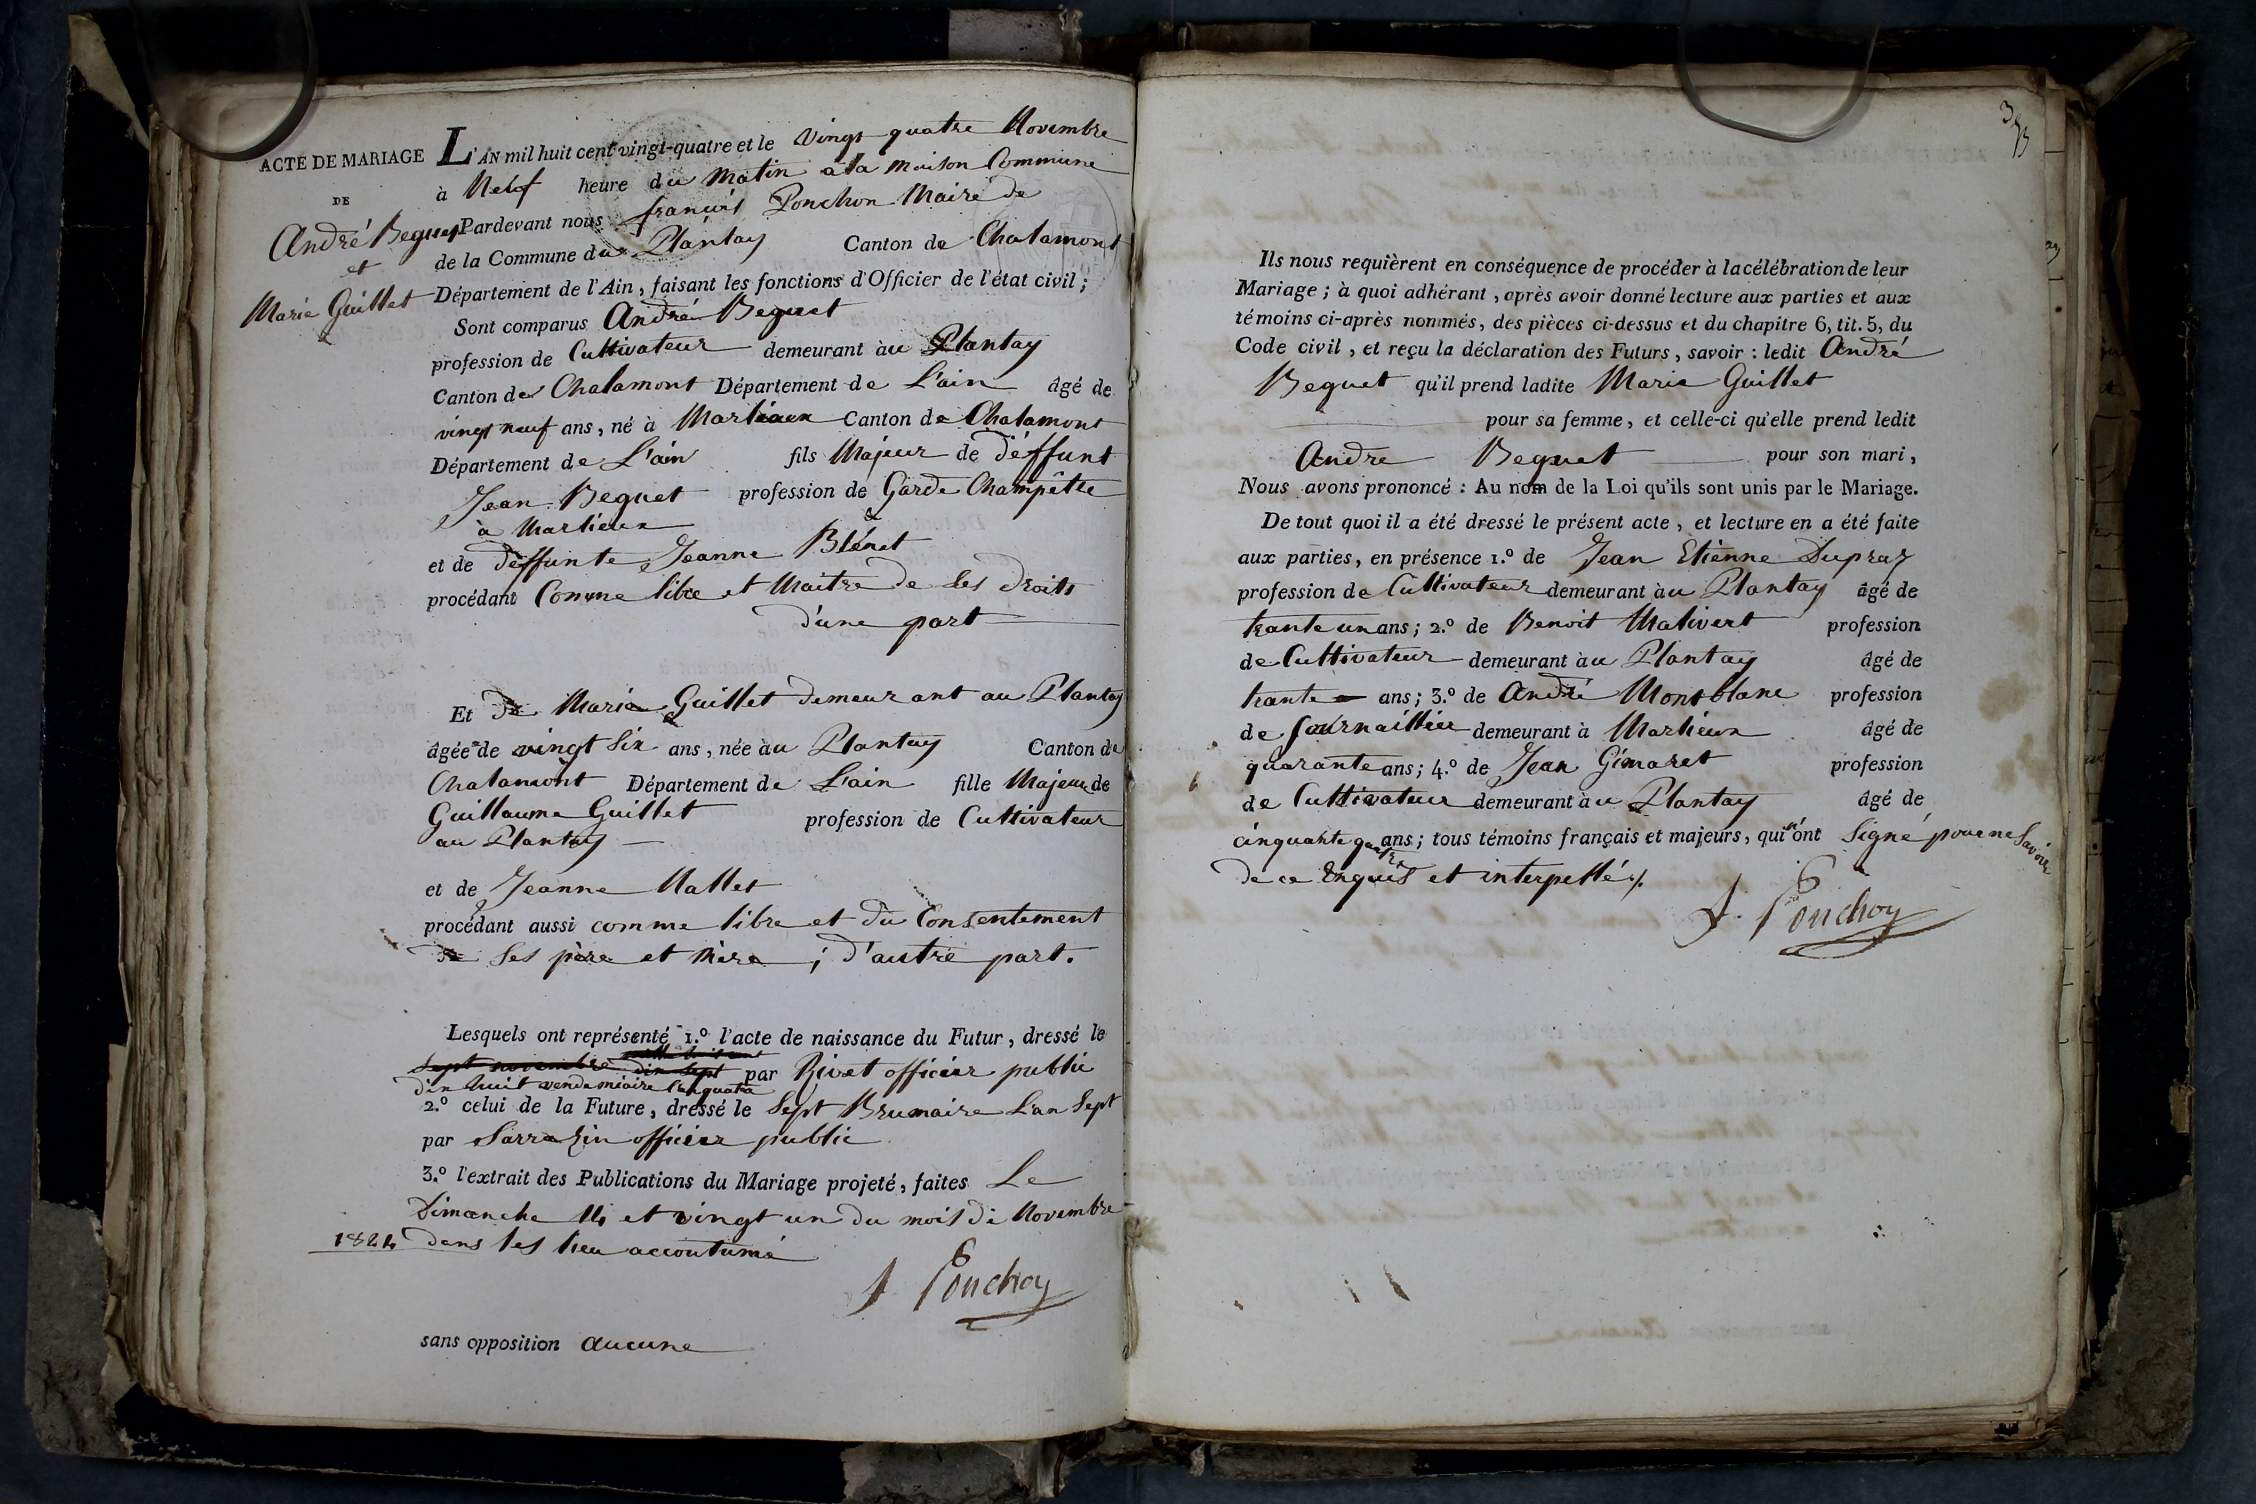 ACTE DE MARIAGE
DE
André Beguet
et
Marie Guillet
L'AN mil huit cent vingt-quatre et le vingt quatre Novembre
à Neuf heure du Matin a la maison Commune
Pardevant nous françois Ponchon Maire de
de la Commune du Plantay Canton de Chalamont
Département de l'Ain, faisant les fonctions d'Officier de l'état civil;
Sont comparus André Beguet
profession de Cultivateur demeurant àu Plantay
Canton de Chalamont Département de L'ain âgé de
vingt neuf ans, né à Marlieux Canton de Chalamont
Département de L'ain fils Majeur de déffunt
Jean Beguet profession de Garde Champêtre
à Marlieux
et de déffunte Jeanne Blénet
procédant Comme libre et Maitre de ses droits
d'une part
Et de Marie Guillet demeurant au Plantay
âgée de vingt six ans, née àu Plantay Canton de
Chalamont Département de L'ain fille Majeure de
Guillaume Guillet profession de Cultivateur
au Plantay
et de Jeanne Nallet
procédant aussi comme libre et du Consentement
de ses père et mère; d'autre part.
Lesquels ont représenté 1.º l'acte de naissance du Futur, dressé le
sept novembre dix sept par Rivet officier public
dix huit vendemiaire l'an quatre
2.º celui de la Future, dressé le sept Brumaire L'an sept
par Sarrazin officier public
3.º l'extrait des Publications du Mariage projeté, faites Le
Dimanche 14 et vingt un du mois de Novembre
1824 dans les lieu accoutumé
f Ponchon
sans opposition aucune
Ils nous requièrent en conséquence de procéder à la célébration de leur
Mariage; à quoi adhérant, après avoir donné lecture aux parties et aux
témoins ci-après nommés, des pièces ci-dessus et du chapitre 6, tit. 5, du
Code civil, et reçu la déclaration des Futurs, savoir: ledit André
Beguet qu'il prend ladite Marie Guillet
pour sa femme, et celle-ci qu'elle prend ledit
Andre Beguet pour son mari,
Nous avons prononcé: Au nom de la Loi qu'ils sont unis par le Mariage.
De tout quoi il a été dressé le présent acte, et lecture en a été faite
aux parties, en présence 1.º de Jean Etienne Dupraz
profession de Cultivateur demeurant àu Plantay âgé de
trante un ans; 2.º de Benoit Malivert profession
de Cultivateur demeurant àu Plantay âgé de
trante ans; 3.º de André Montblanc profession
de journaillier demeurant à Marlieux âgé de
quarante ans; 4.º de Jean Gimaret profession
de Cultivateur demeurant àu Plantay âgé de
cinquante quatre ans; tous témoins français et majeurs, qui n'ont signé pour ne savoir
de ce Enquis et interpellés.
f. Ponchon